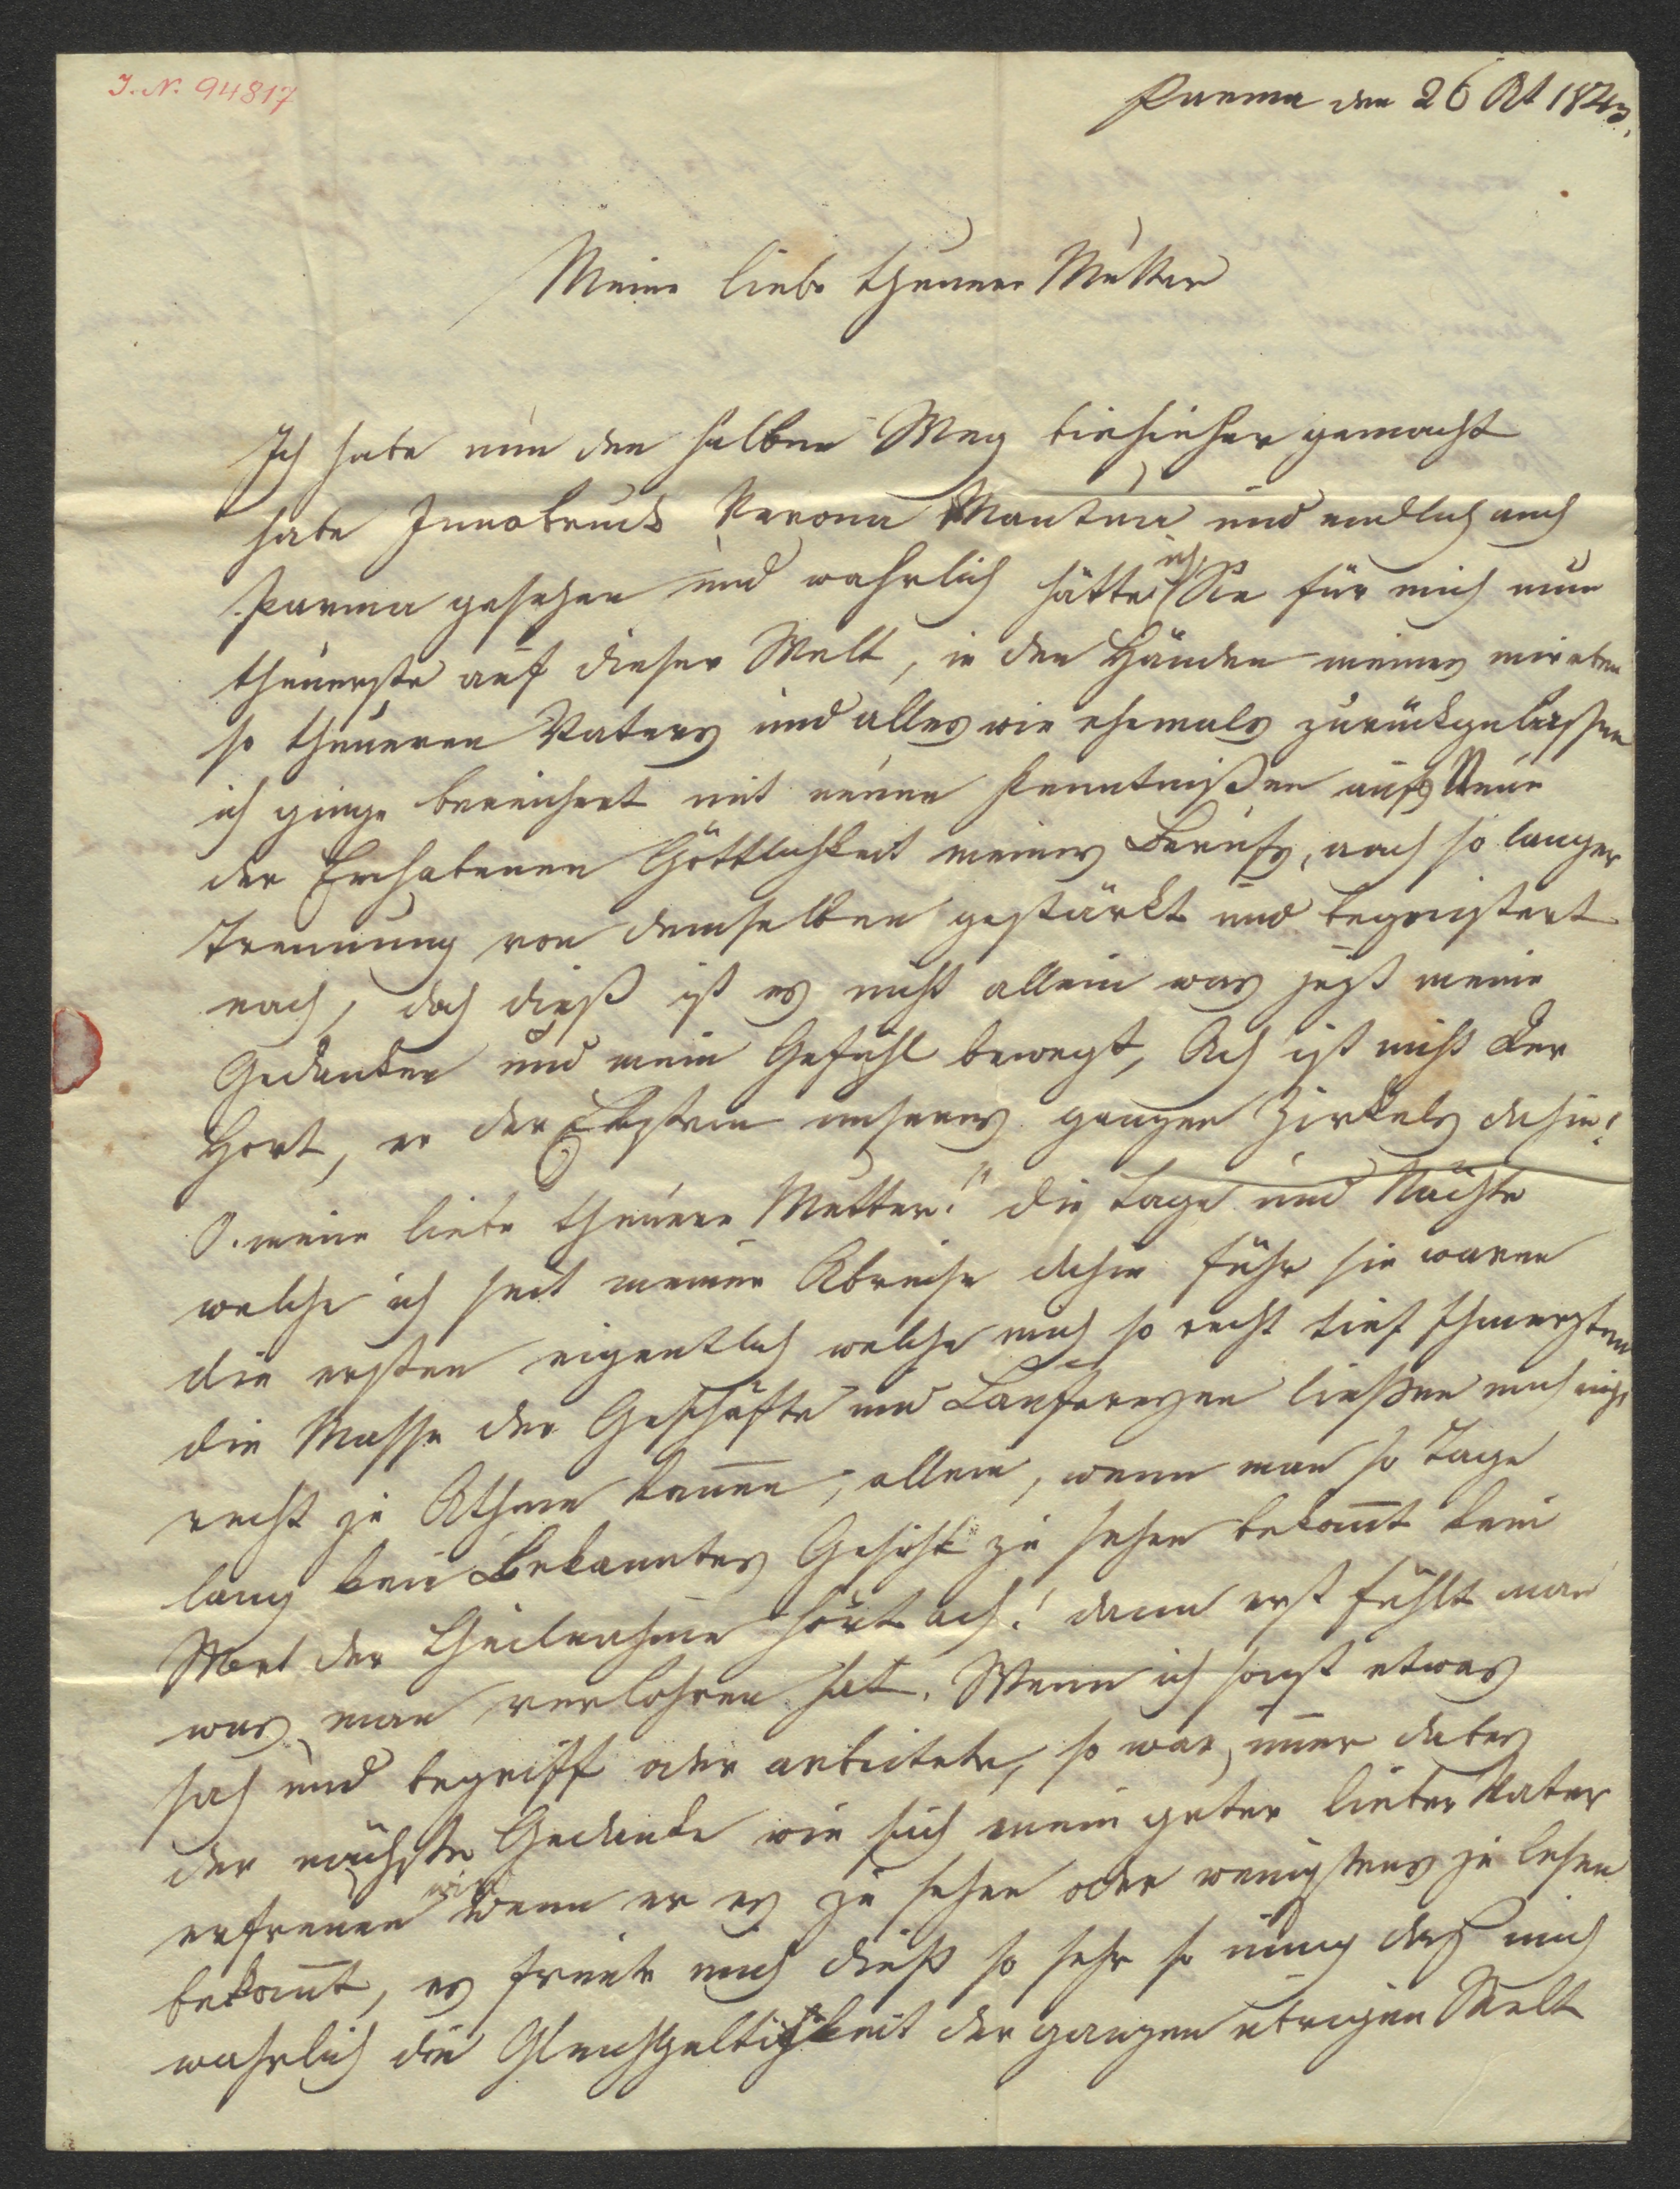 I. N. 94817
Parma den 26 Okt 1843.
Meine liebe theuere Mutter
Ich habe nun den halben Weg biehieher gemacht
habe Innsbruck Verona Mantua und endlich auch
Parma gesehen und wahrlich hätte ich Sie für mich nun
theuerste auf dieser Welt, in den Händen meines mir eben
so theueren Vaters und alles wie ehemals zurückgelassen
ich ginge bereichert mit neuen Kenntnißen aufs Neue
der Erhabenen Göttlichkeit meines Berufs, nach so langer
Trennung von demselben gestärkt und begeistert
nach, doch dieß ist es nicht allein was jezt meine
Gedanken und mein Gefühl bewegt, Ach ist nicht der
Hort, er der Ekstein unseres ganzen Zirkels dahin!
O meine liebe theuere Mutter! die Tage und Nächte
welche ich seit meiner Abreise dahin fuhr sie waren
die ersten eigentlich welche mich so recht tief schmerzten
die Masse der Geschäfte und Laufereyen ließen mich nicht
recht zu Athem kommen, allein, wenn man so Tage
lang kein Bekanntes Gesicht zu sehen bekomt kein
Wort der Theilnahme hört ach! dann erst fühlt man
was man verlohren hat. Wenn ich sonst etwas
sah und begriff oder arbeitete, so war imer dabey
der nächste Gedanke wie sich mein guter lieber Vater
erfreuen wird wenn er es zu sehen oder wenigstens zu lesen
bekomt, es freute mich dieß so sehr so innig daß mich
wahrlich die Gleichgeltigkeit der ganzen übrigen Welt